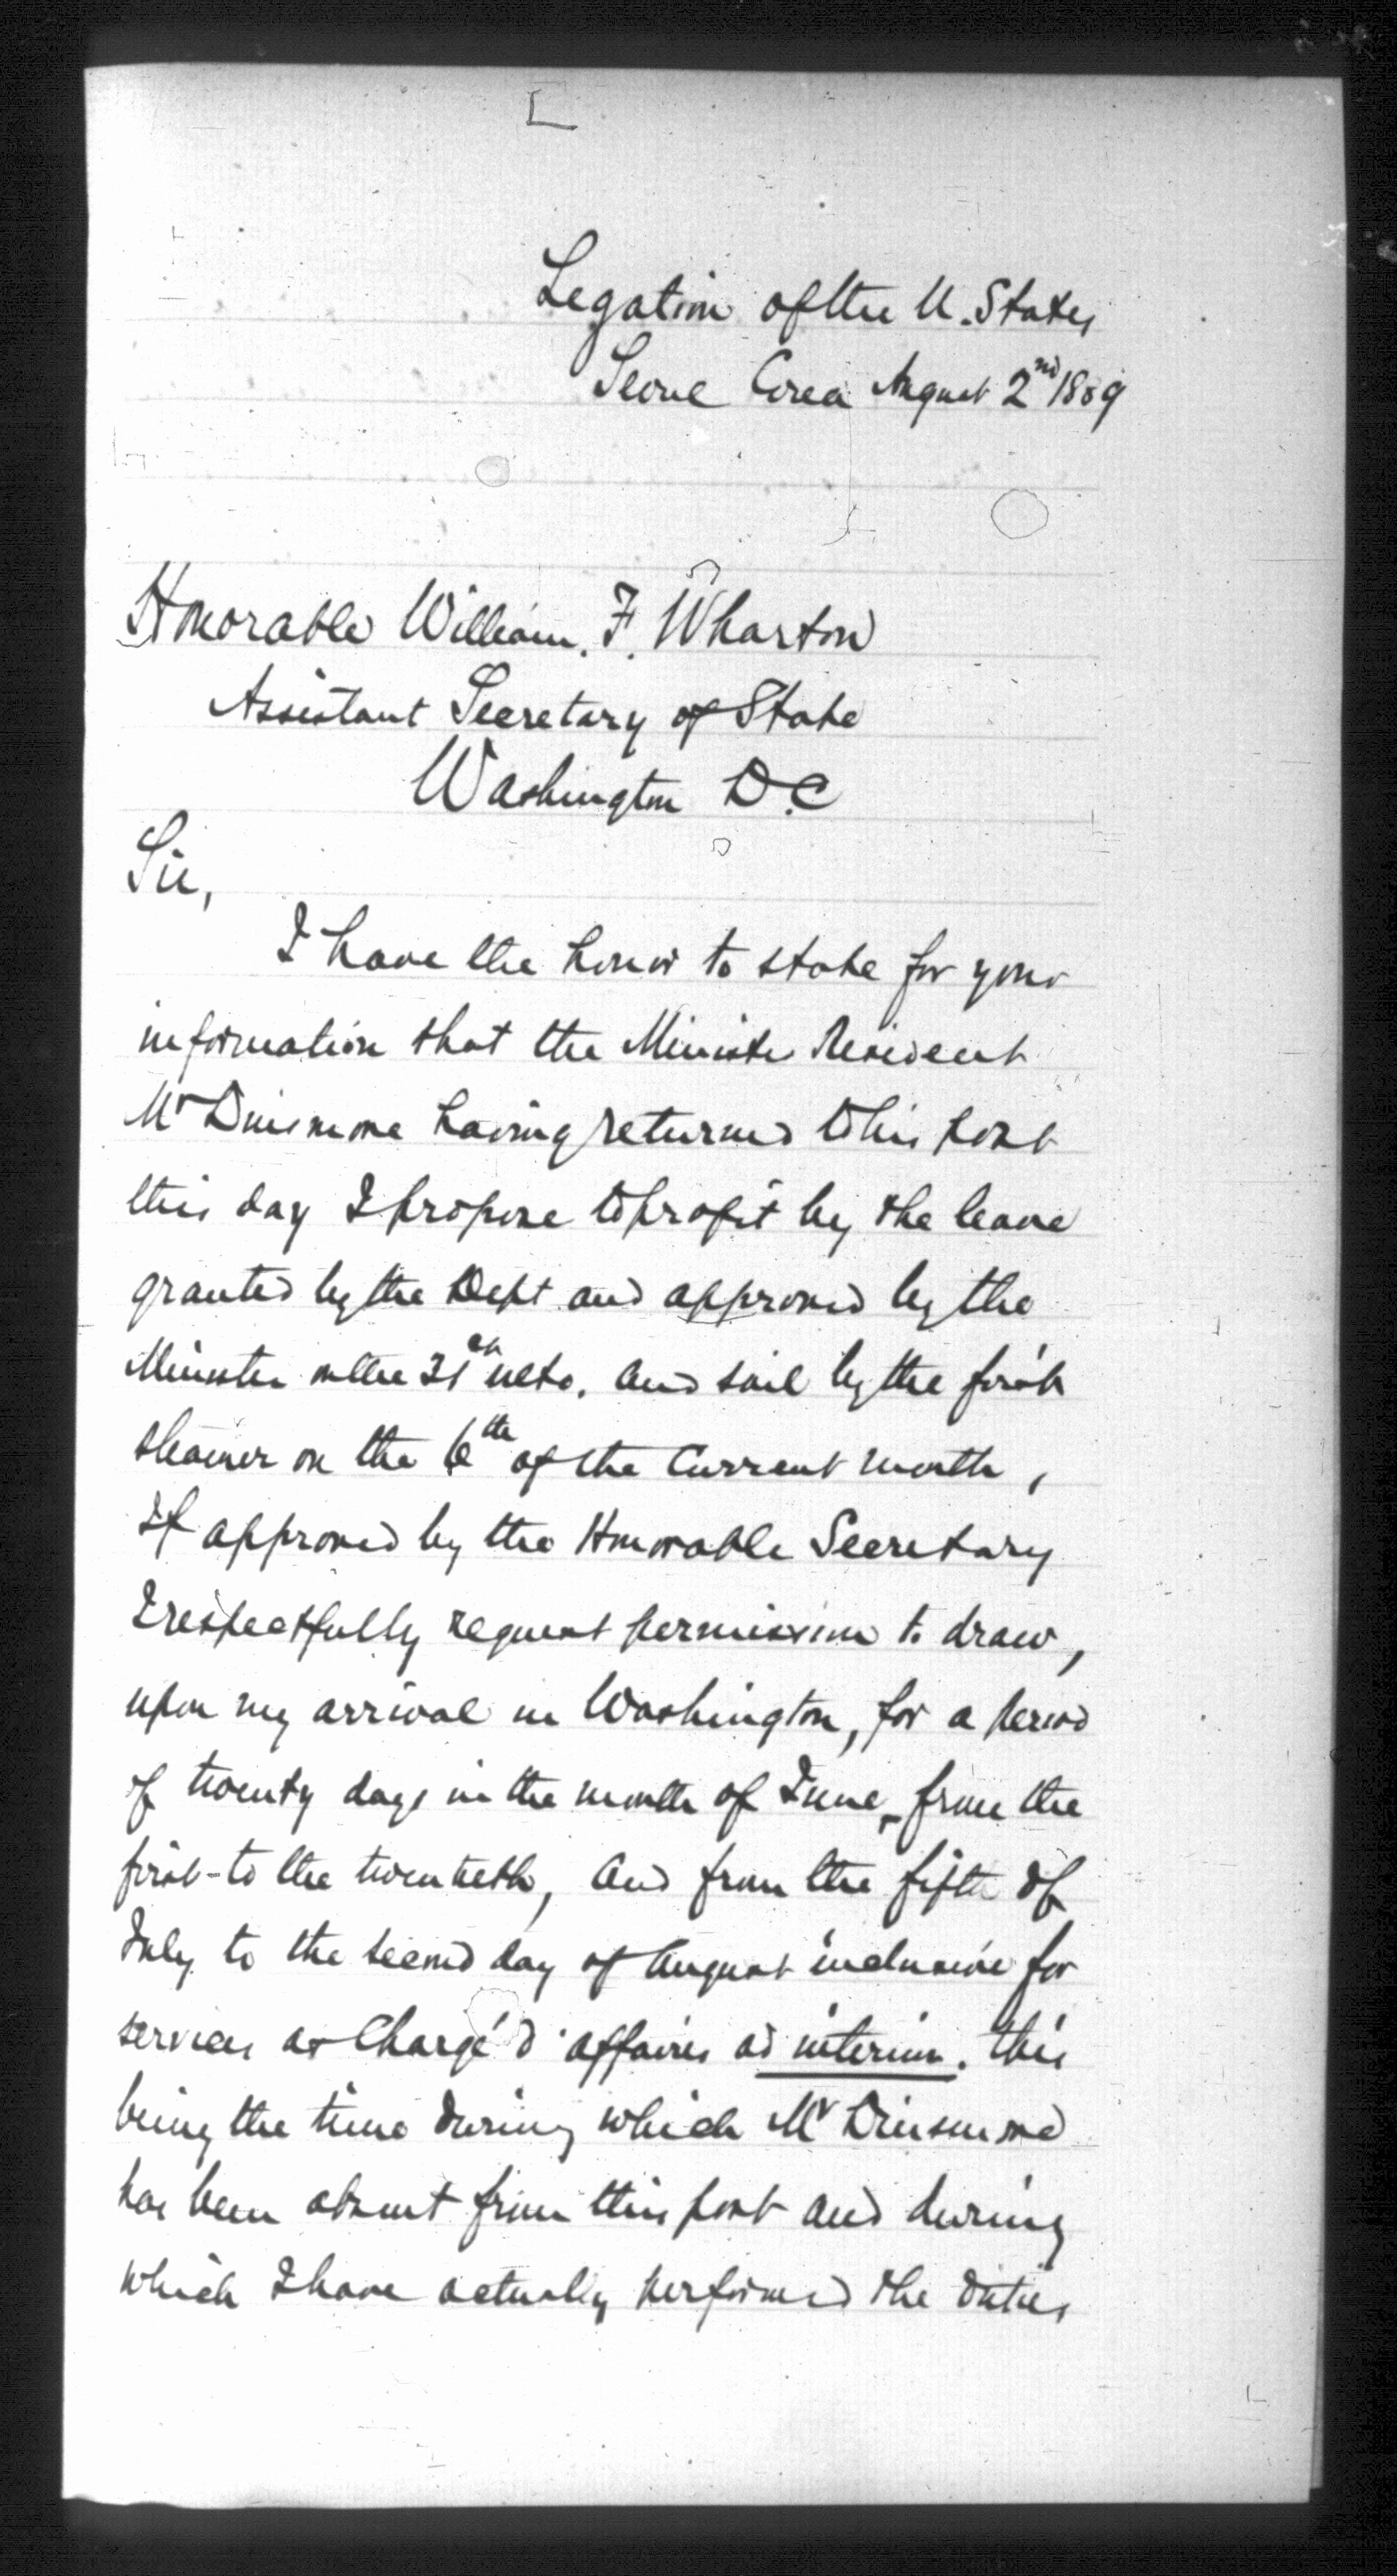 Legation of the U. States
Seoul Corea August 2nd 1889
Honorable William. F. Wharton
Assistant Secretary of State
Washington D.C
Sir,
I have the honor to state for your
information that the Minister Resident
Mr Dinsmore having returned to his post
this day I propose to profit by the leave
granted by the Dept and approved by the
Minister on the 31st ulto. and sail by the first
steamer on the 6th of the Current month,
If approved by the Honorable Secretary
I respectfully request permission to draw,
upon my arrival in Washington, for a period
of twenty days in the month of June, from the
first-to the twentieth, and from the fifth of
July to the second day of August inclusive for
services as Chargé d'affaires ad interim. this
being the time during which Mr Dinsmore
has been absent from this post and during
which I have actually performed the duties